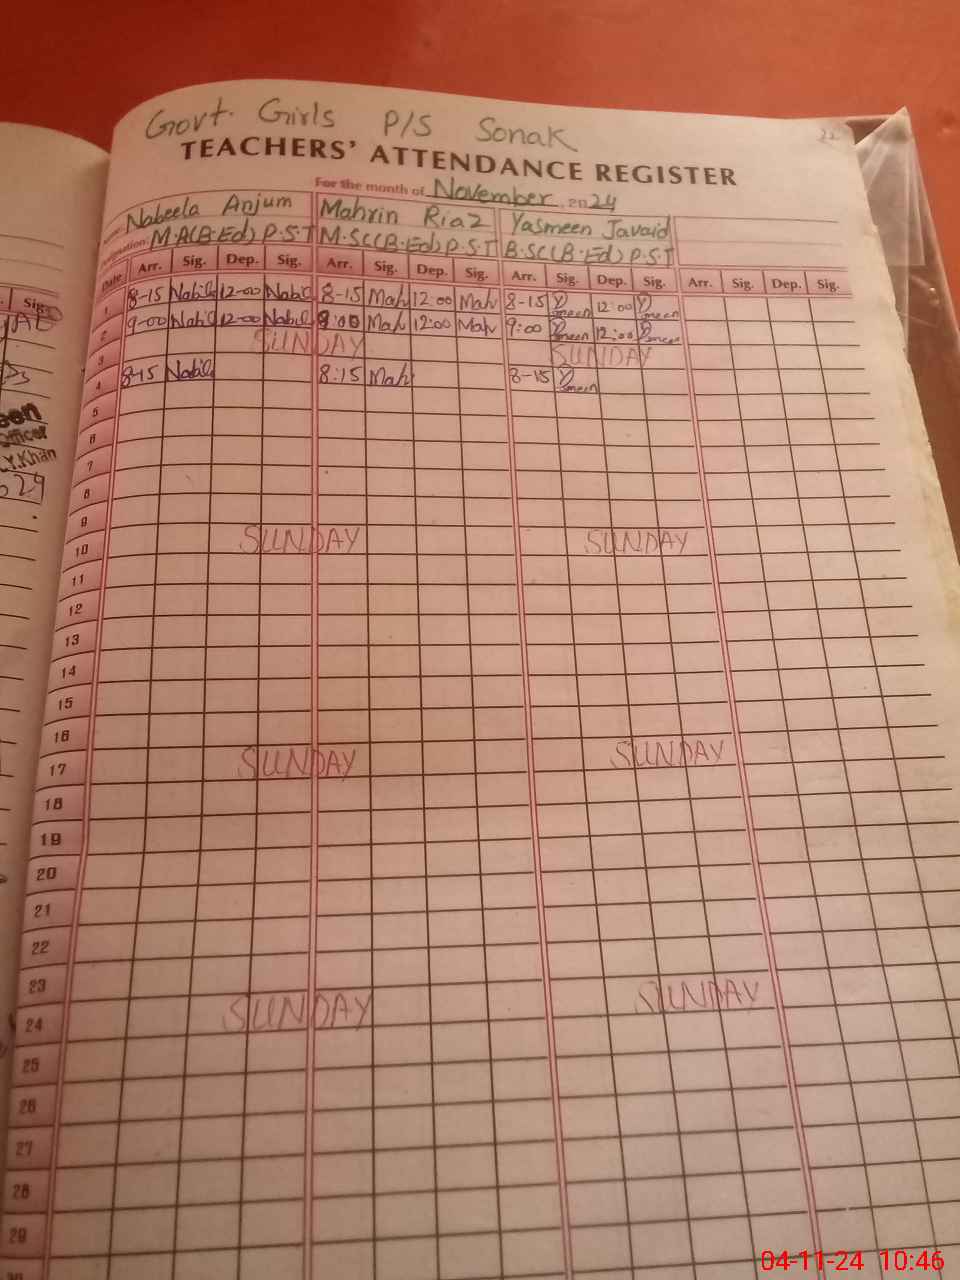 Govt. Girls P/S Sonak
22
TEACHERS' ATTENDANCE REGISTER
For the month of November, 2024
Name: Nabeela Anjum Mahrin Riaz Yasmeen Javaid
Designation: M.A(B.Ed) P.S.T M.SC(B.Ed) P.S.T B.SC(B.Ed) P.S.T
Date Arr. Sig. Dep. Sig. Arr. Sig. Dep. Sig. Arr. Sig. Dep. Sig. Arr. Sig. Dep. Sig.
1 8-15 Nabil 12-00 Nabil 8-15 Mah 12:00 Mah 8-15 Ysmeen 12:00 Ysmeen
2 9-00 Nabil 12-00 Nabil 9:00 Mah 12:00 Mah 9:00 Ysmeen 12:00 Ysmeen
3 SUNDAY SUNDAY
4 8-15 Nabil 8:15 Mah 8-15 Ysmeen
5
6
7
8
9
10 SUNDAY SUNDAY
11
12
13
14
15
16
17 SUNDAY SUNDAY
18
19
20
21
22
23
24 SUNDAY SUNDAY
25
26
27
28
29
Sig.
Officer
Y.Khan
04-11-24 10:46